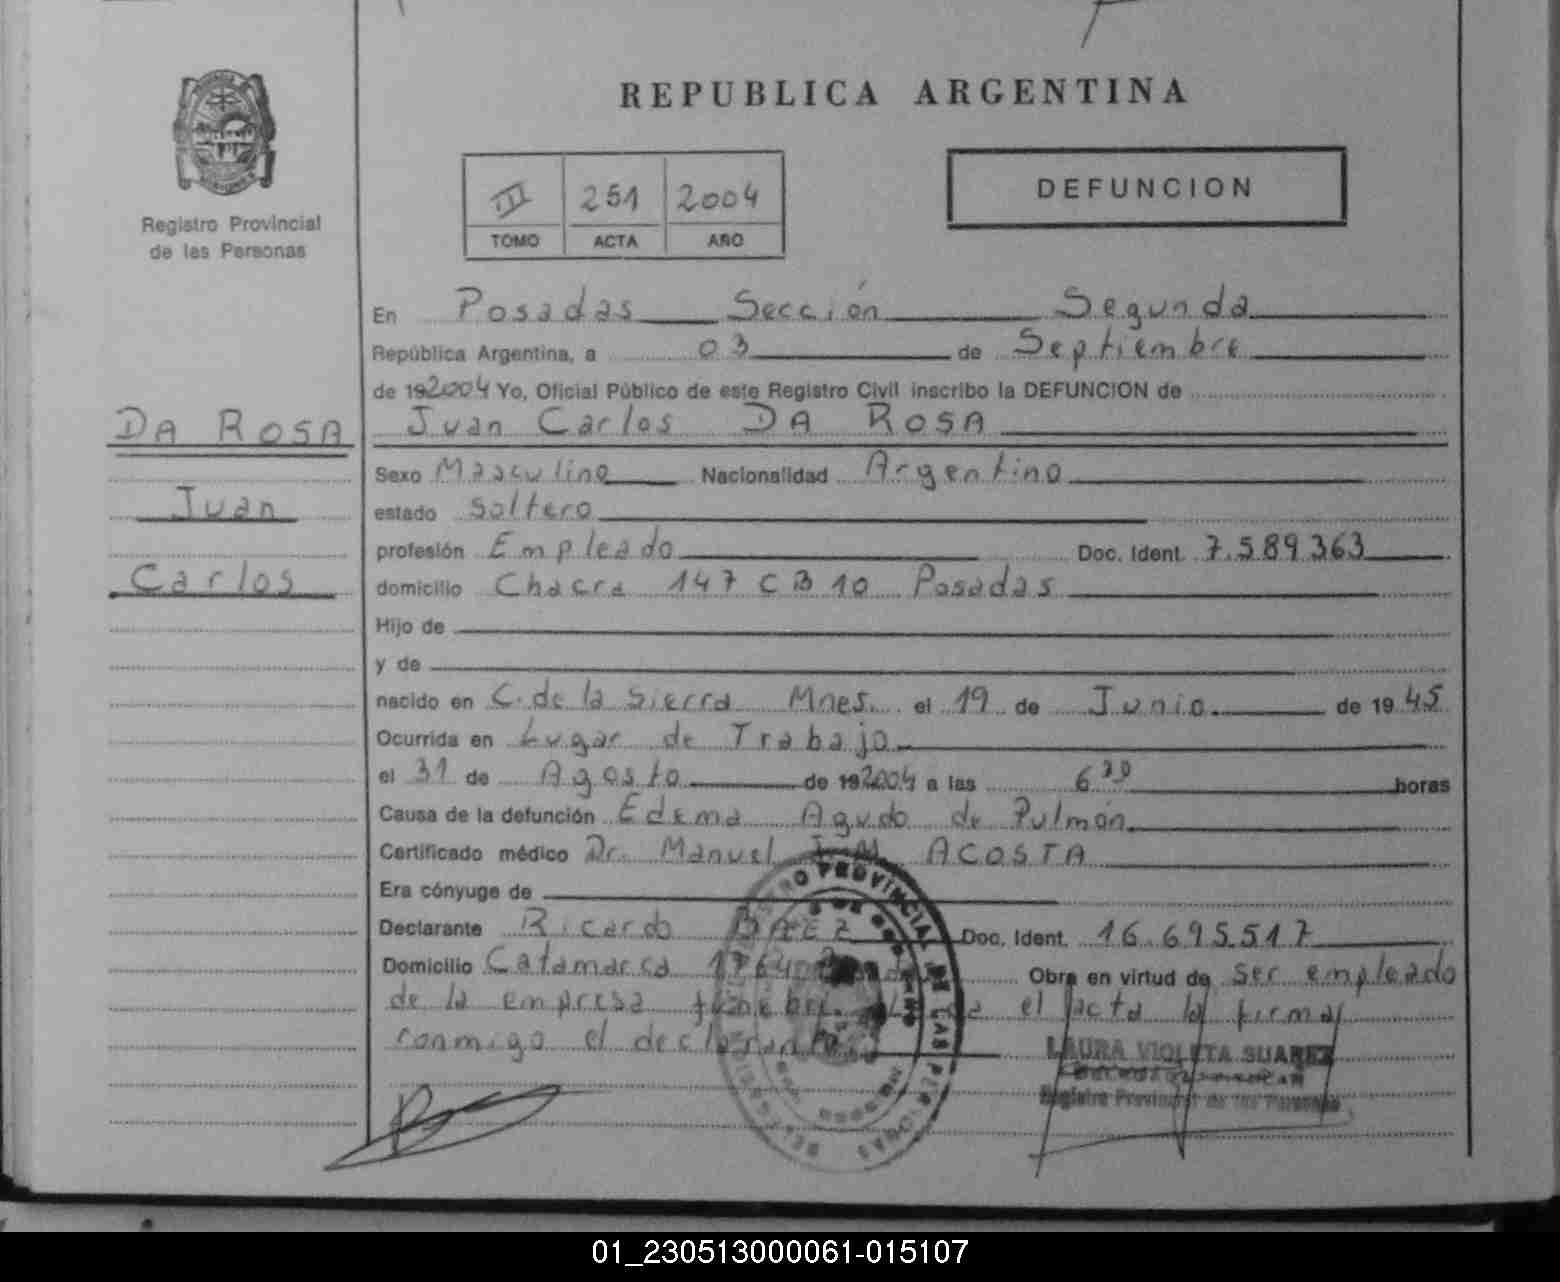 REPUBLICA ARGENTINA
Registro Provincial
de las Personas
III 251 2004
TOMO ACTA AÑO
DEFUNCION
En Posadas Sección Segunda
República Argentina, a 03 de Septiembre
de 192004 Yo, Oficial Público de este Registro Civil inscribo la DEFUNCION de
DA ROSA
Juan
Carlos
Juan Carlos DA ROSA
Sexo Masculino Nacionalidad Argentino
estado Soltero
profesión Empleado Doc. Ident. 7.589.363
domicilio Chacra 147 C B 10 Posadas
Hijo de
y de
nacido en C. de la Sierra Mnes. el 19 de Junio de 1945
Ocurrida en Lugar de Trabajo
el 31 de Agosto de 192004 a las 6 30 horas
Causa de la defunción Edema Agudo de Pulmón
Certificado médico Dr. Manuel J. M. ACOSTA
Era cónyuge de
Declarante Ricardo BAEZ Doc. Ident. 16.695.517
Domicilio Catamarca 1764 Obra en virtud de ser empleado
de la empresa fúnebre el acta la firma
conmigo el declarante
LAURA VIOLETA SUAREZ
Registro Provincial de las Personas
REGISTRO PROVINCIAL DE LAS PERSONAS
01_230513000061-015107